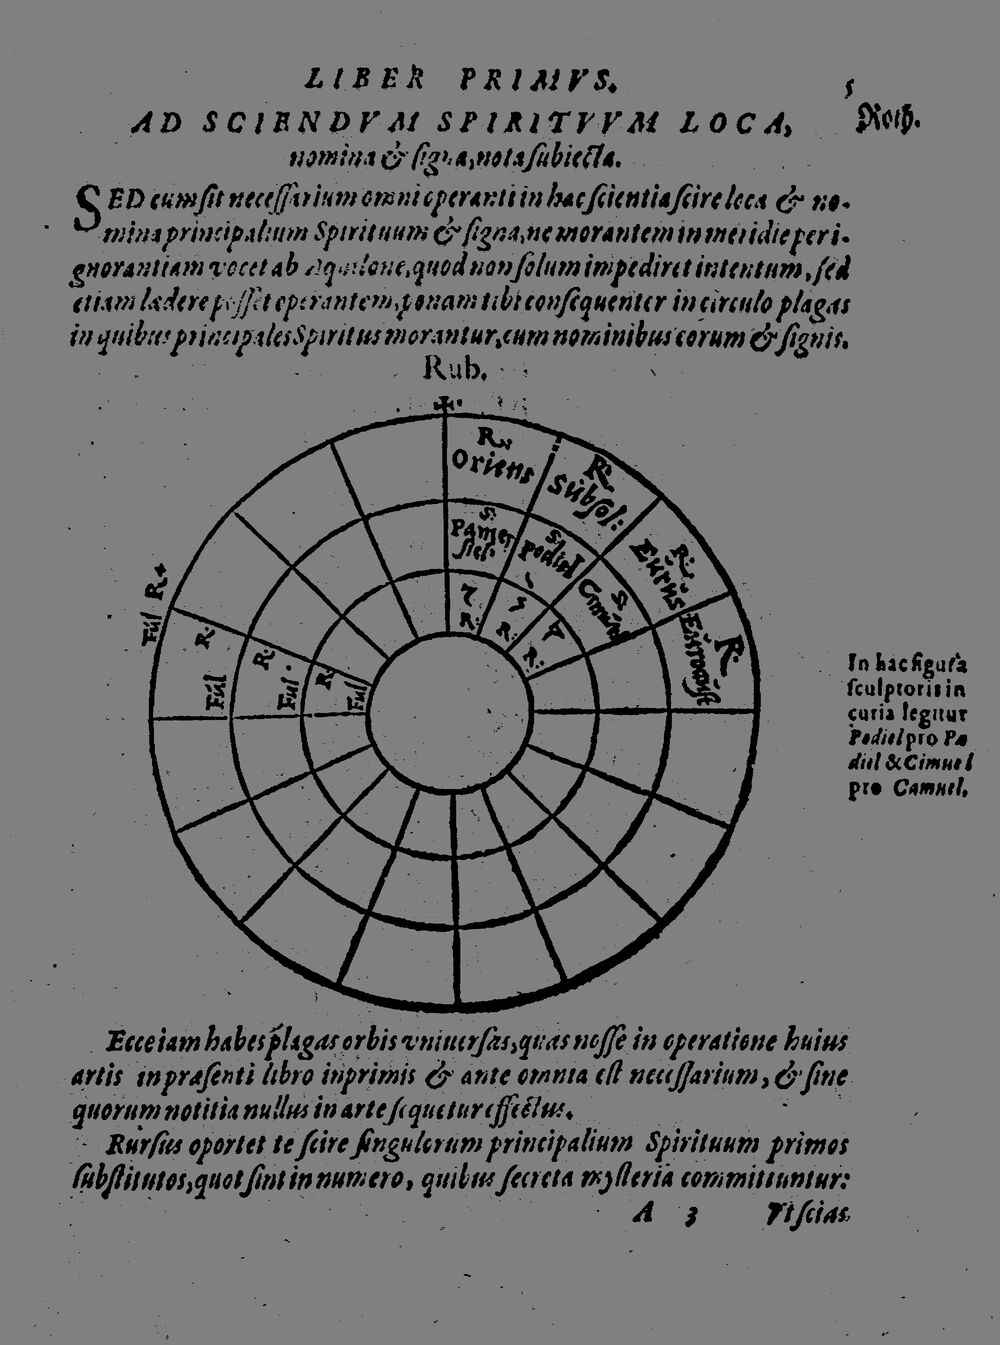 LIBER PRIMVS.
5
AD SCIENDVM SPIRITVVM LOCA,
Roth.
nomina & ſigna, nota ſubiecta.
SED cum ſit neceſſarium omni operanti in hac ſcientia ſcire loca & no-
mina principalium Spirituum & ſigna, ne morantem in meridie per i-
gnorantiam vocet ab Aquilone, quod non ſolum impediret intentum, ſed
etiam lædere poſſet operantem, ponam tibi conſequenter in circulo plagas
in quibus principales Spiritus morantur, cum nominibus eorum & ſignis.
Rub.
R.
Oriens
R.
Subſol:
R.
Eurus
R.
s:
Pamer
ſiel.
s.
Podiel
s.
R:
R:
R:
R
Fúl
R:
Fúl
R:
Ful.
R:
Ful
In hac figura
ſculptoris in
curia legitur
Podiel pro Pa
diel & Cimuel
pro Camuel.
Ecce iam habes plagas orbis vniuerſas, quas noſſe in operatione huius
artis in præſenti libro inprimis & ante omnia eſt neceſſarium, & ſine
quorum notitia nullus in arte ſequetur effectus.
Rurſus oportet te ſcire ſingulorum principalium Spirituum primos
ſubſtitutos, quot ſint in numero, quibus ſecreta myſteria committuntur:
A 3 Vt ſcias